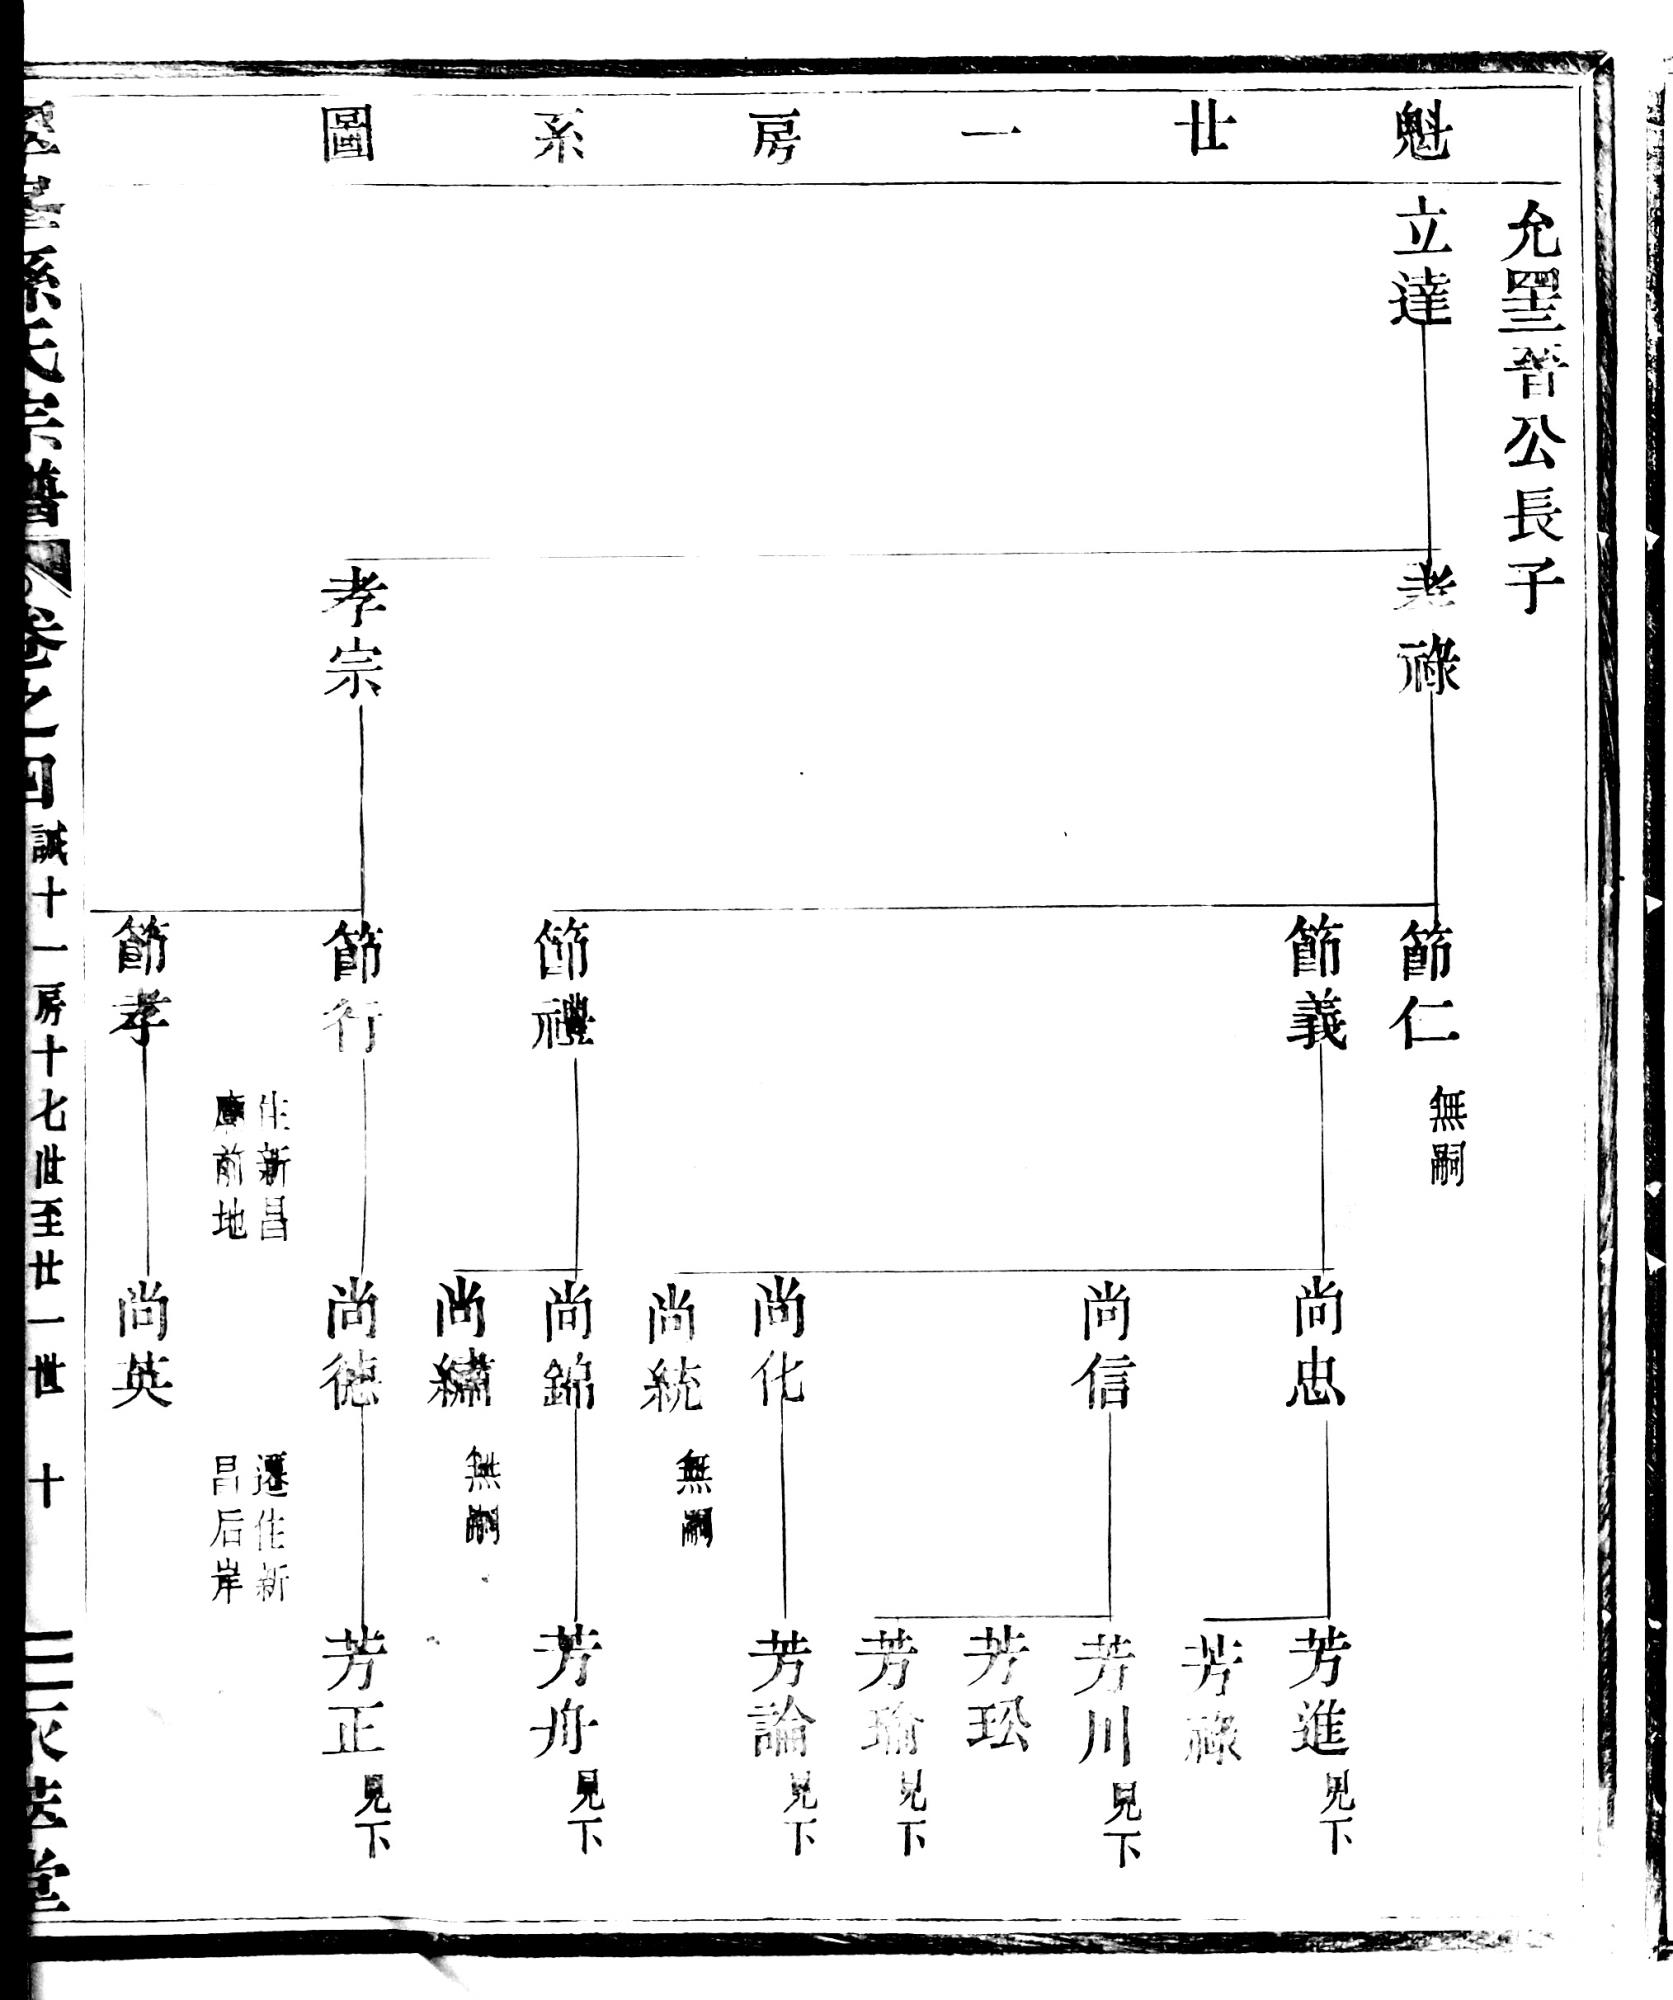 魁廿一房系圖
允四十三晉公長子
立達
孝祿
孝宗
節仁 無嗣
節義
節禮
節行
住新昌
廟前地
節孝
尚忠
尚信
尚化
尚統 無嗣
尚錦
尚繡 無嗣
尚德
遷住新
昌后岸
尚英
芳進 見下
芳祿
芳川 見下
芳玜
芳瑜 見下
芳論 見下
芳舟 見下
芳正 見下
孫氏宗譜 卷之四 誠十一房十七世至廿一世 十 堂